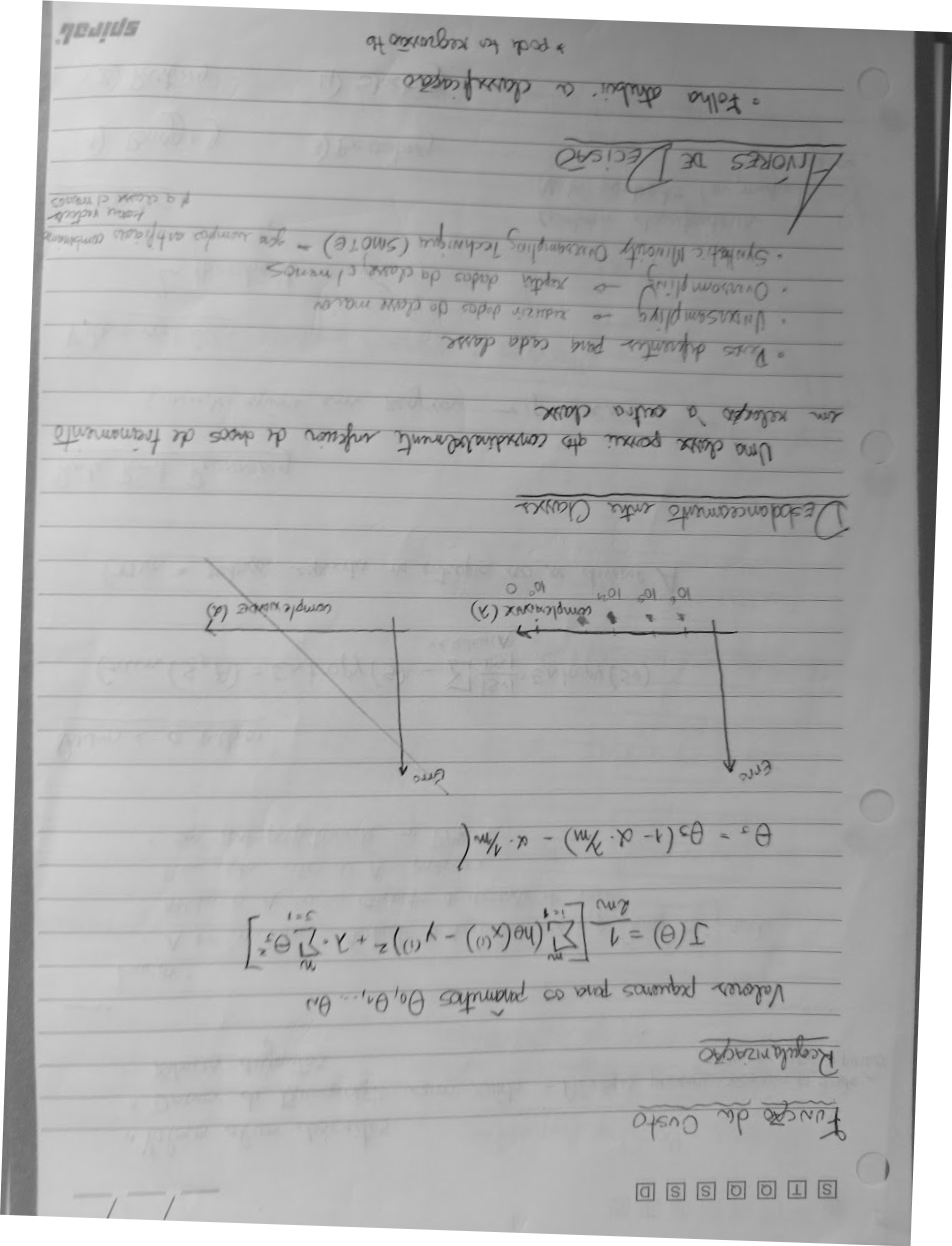 S T Q Q S S D
Função de Custo
Regularização
Valores pequenos para os parâmetros θ0, θ1, ... θn
J(θ) = 1/2m [ m∑i=1 (hθ(x⁽ⁱ⁾) - y⁽ⁱ⁾)² + λ · n∑j=1 θj² ]
θj = θj (1 - α · λ/m) - α · 1/m (
Erro
Erro
complexidade (λ)
complexidade (d)
Desbalanceamento entre Classes
Uma classe possui qtd consideravelmente inferior de dados de treinamento
em relação à outra classe
• Pesos diferentes para cada classe
• Undersampling → reduzir dados da classe maior
• Oversampling → repetir dados da classe c/ menos
• Synthetic Minority Oversampling Technique (SMOTE) - gera exemplos artificiais
p/ a classe c/ menos
ÁRVORES DE DECISÃO
• Folha atribui a classificação
* pode ter regressão tb
spiral